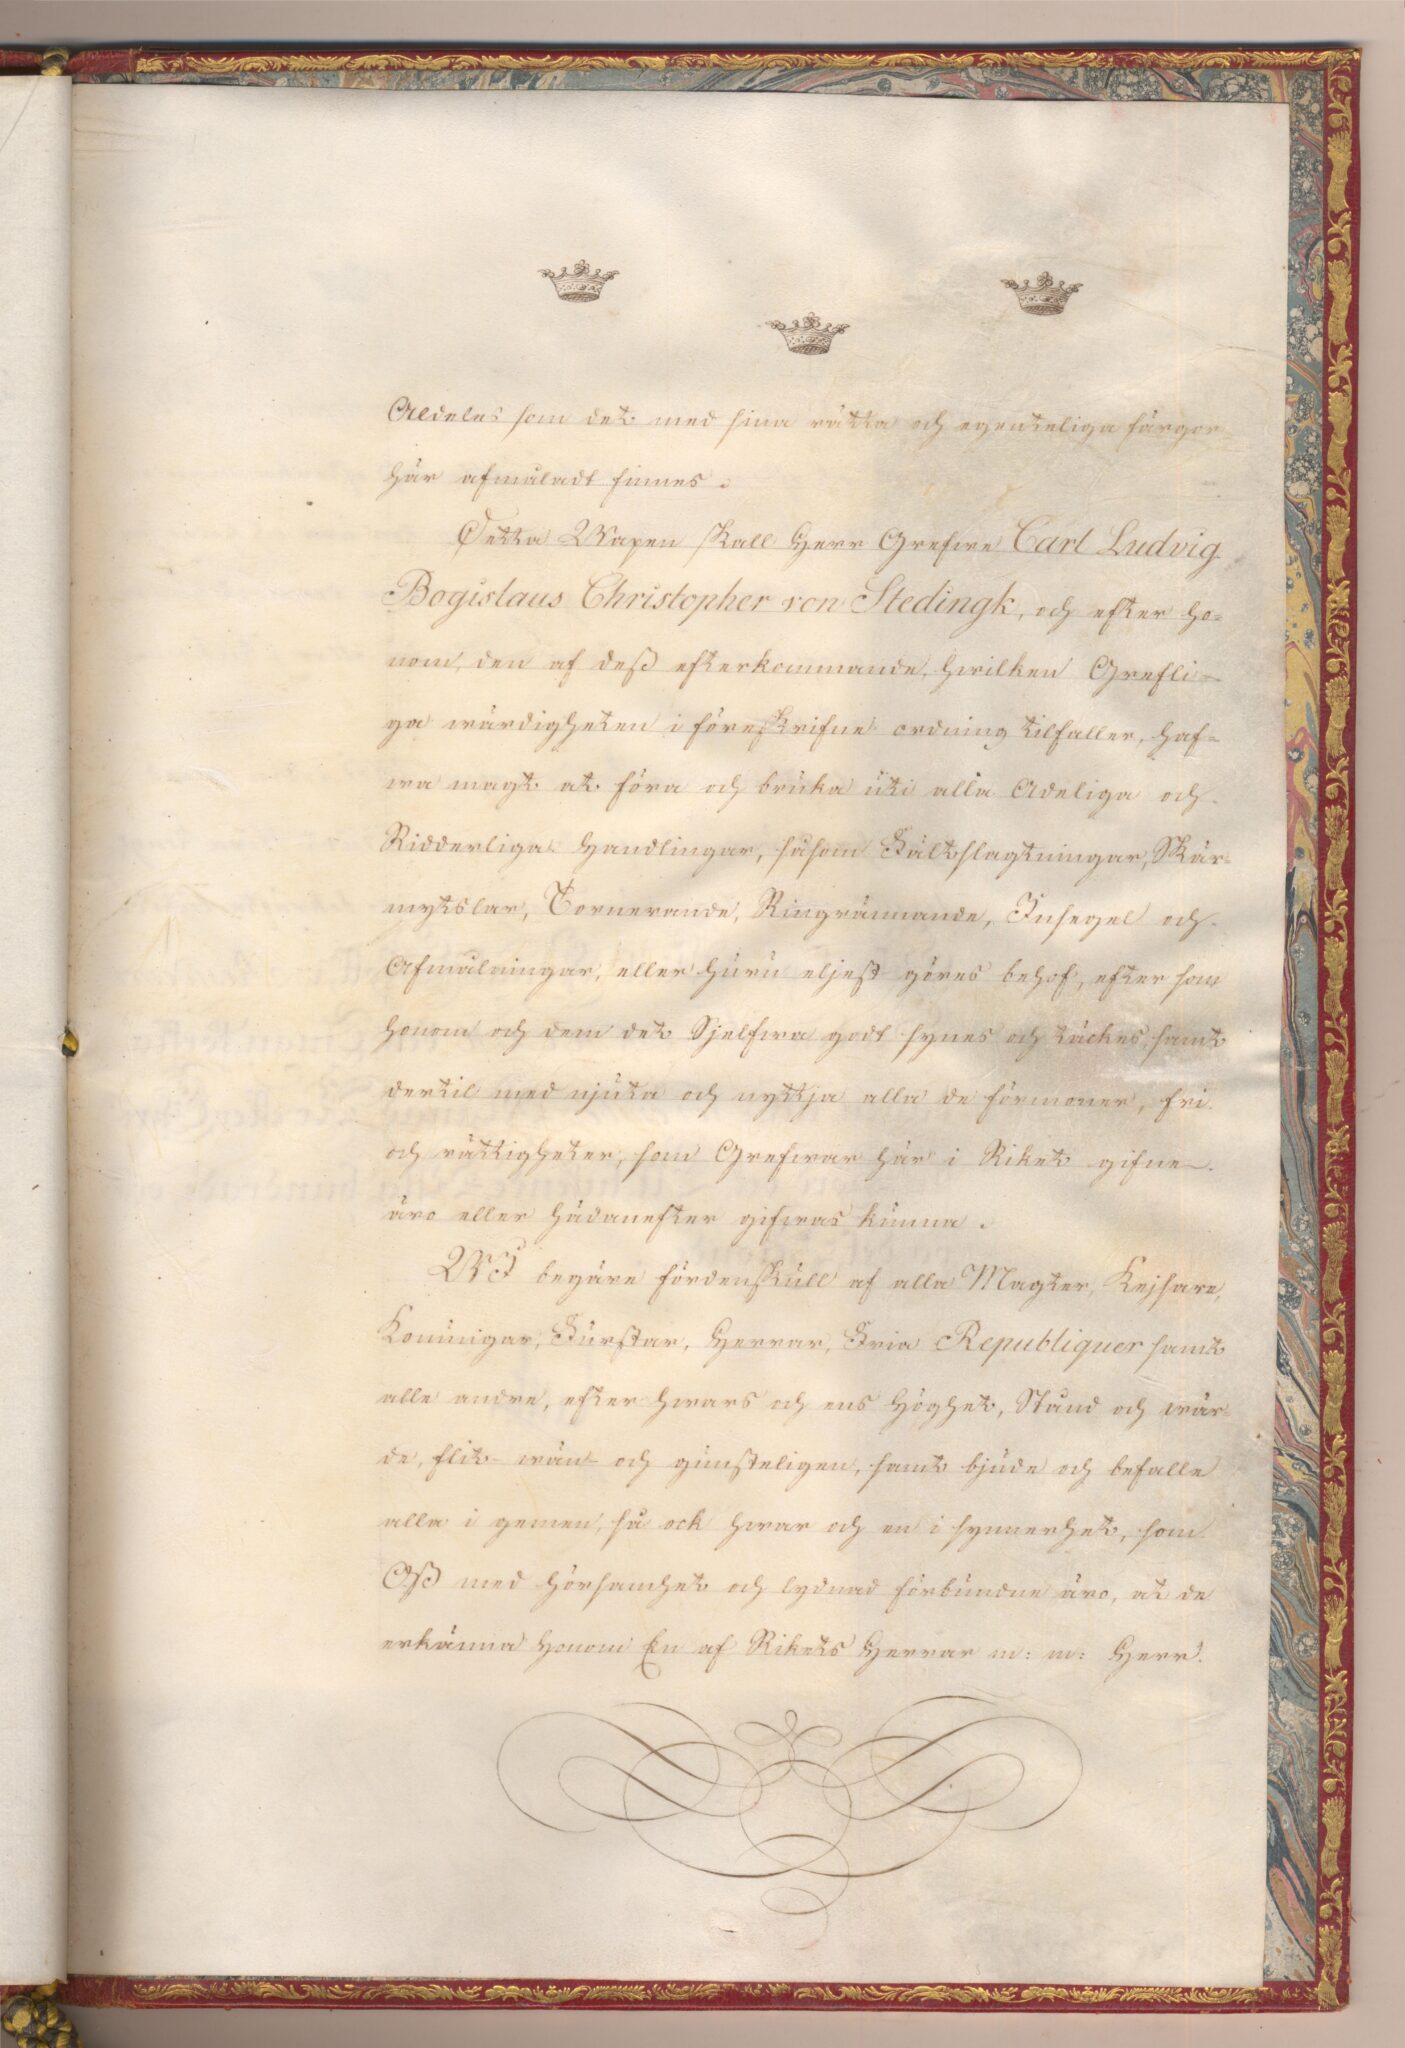 Aldeles som det med sina rätta och egenteliga färgor
här afmåladt finnes.
Detta Wapen skall Herr Grefwe Carl Ludvig
Bogislaus Christopher von Stedingk, och efter ho-
nom, den af deß efterkommande, hwilken Grefli-
ga wärdigheten i föreskrifne ordning tilfaller, haf-
wa magt at föra och bruka uti alla Adeliga och
Ridderliga Handlingar, såsom Fältslagtningar, Skär-
mytslar, Tornerande, Ringrännande, Insegel och
Afmålningar, eller huru eljest göres behof, efter som
honom och dem det Sjelfwa godt synes och täckes, samt
dertil med njuta och nyttja alla de förmoner, fri
och rättigheter, som Grefwar här i Riket gifne
äro eller hädanefter gifwas kunna.
WI begäre fördenskull af alla Magter, Kejsare,
Konungar, Furstar, Herrar, Fria Republiquer samt
alle andre, efter hwars och ens Höghet, Stånd och wär-
de, flit- wän- och gunsteligen, samt bjude och befalle
alla i gemen, så ock hwar och en i synnerhet, som
Oß med hörsamhet och lydnad förbundne äro, at de
erkänna honom En af Rikets Herrar m: m: Herr